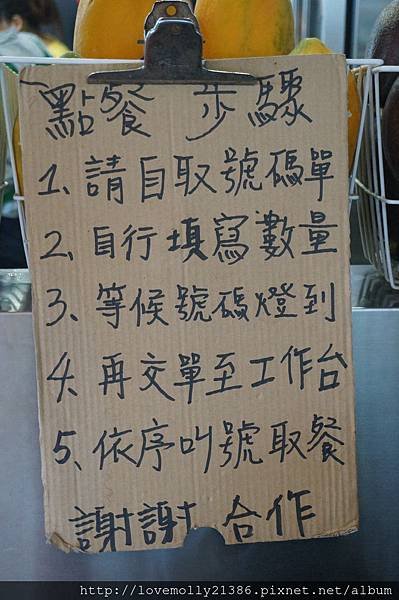 點餐 步驟
1、請自取號碼單
2、自行填寫數量
3、等候號碼燈到
4、再交單至工作台
5、依序叫號取餐
謝謝 合作
http://lovemolly21386.pixnet.net/album